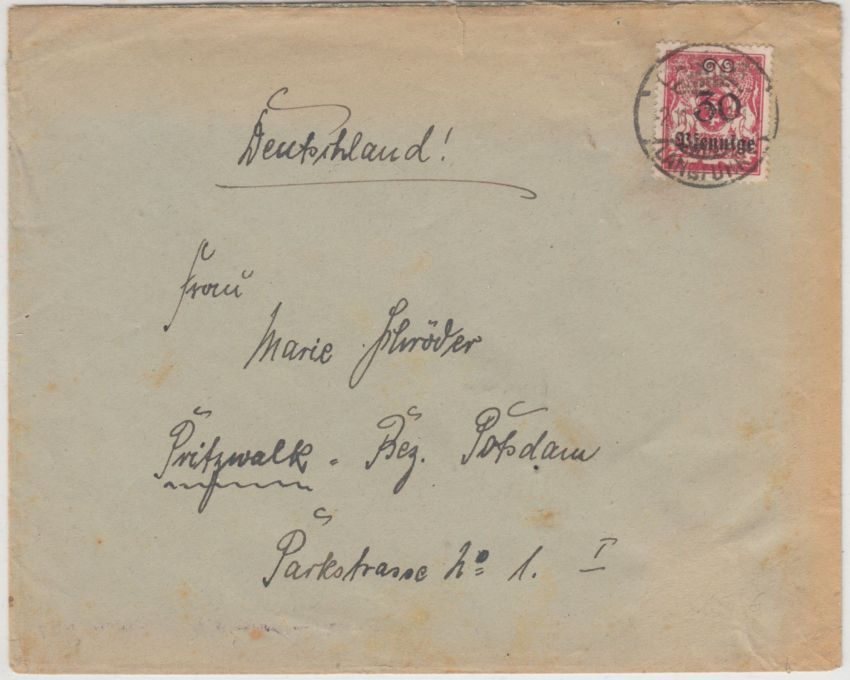 30
Pfennige
LANGFUHR
Deutschland!
Frau
Marie Schröder
Pritzwalk - Bez. Potsdam
Parkstrasse No 1. I